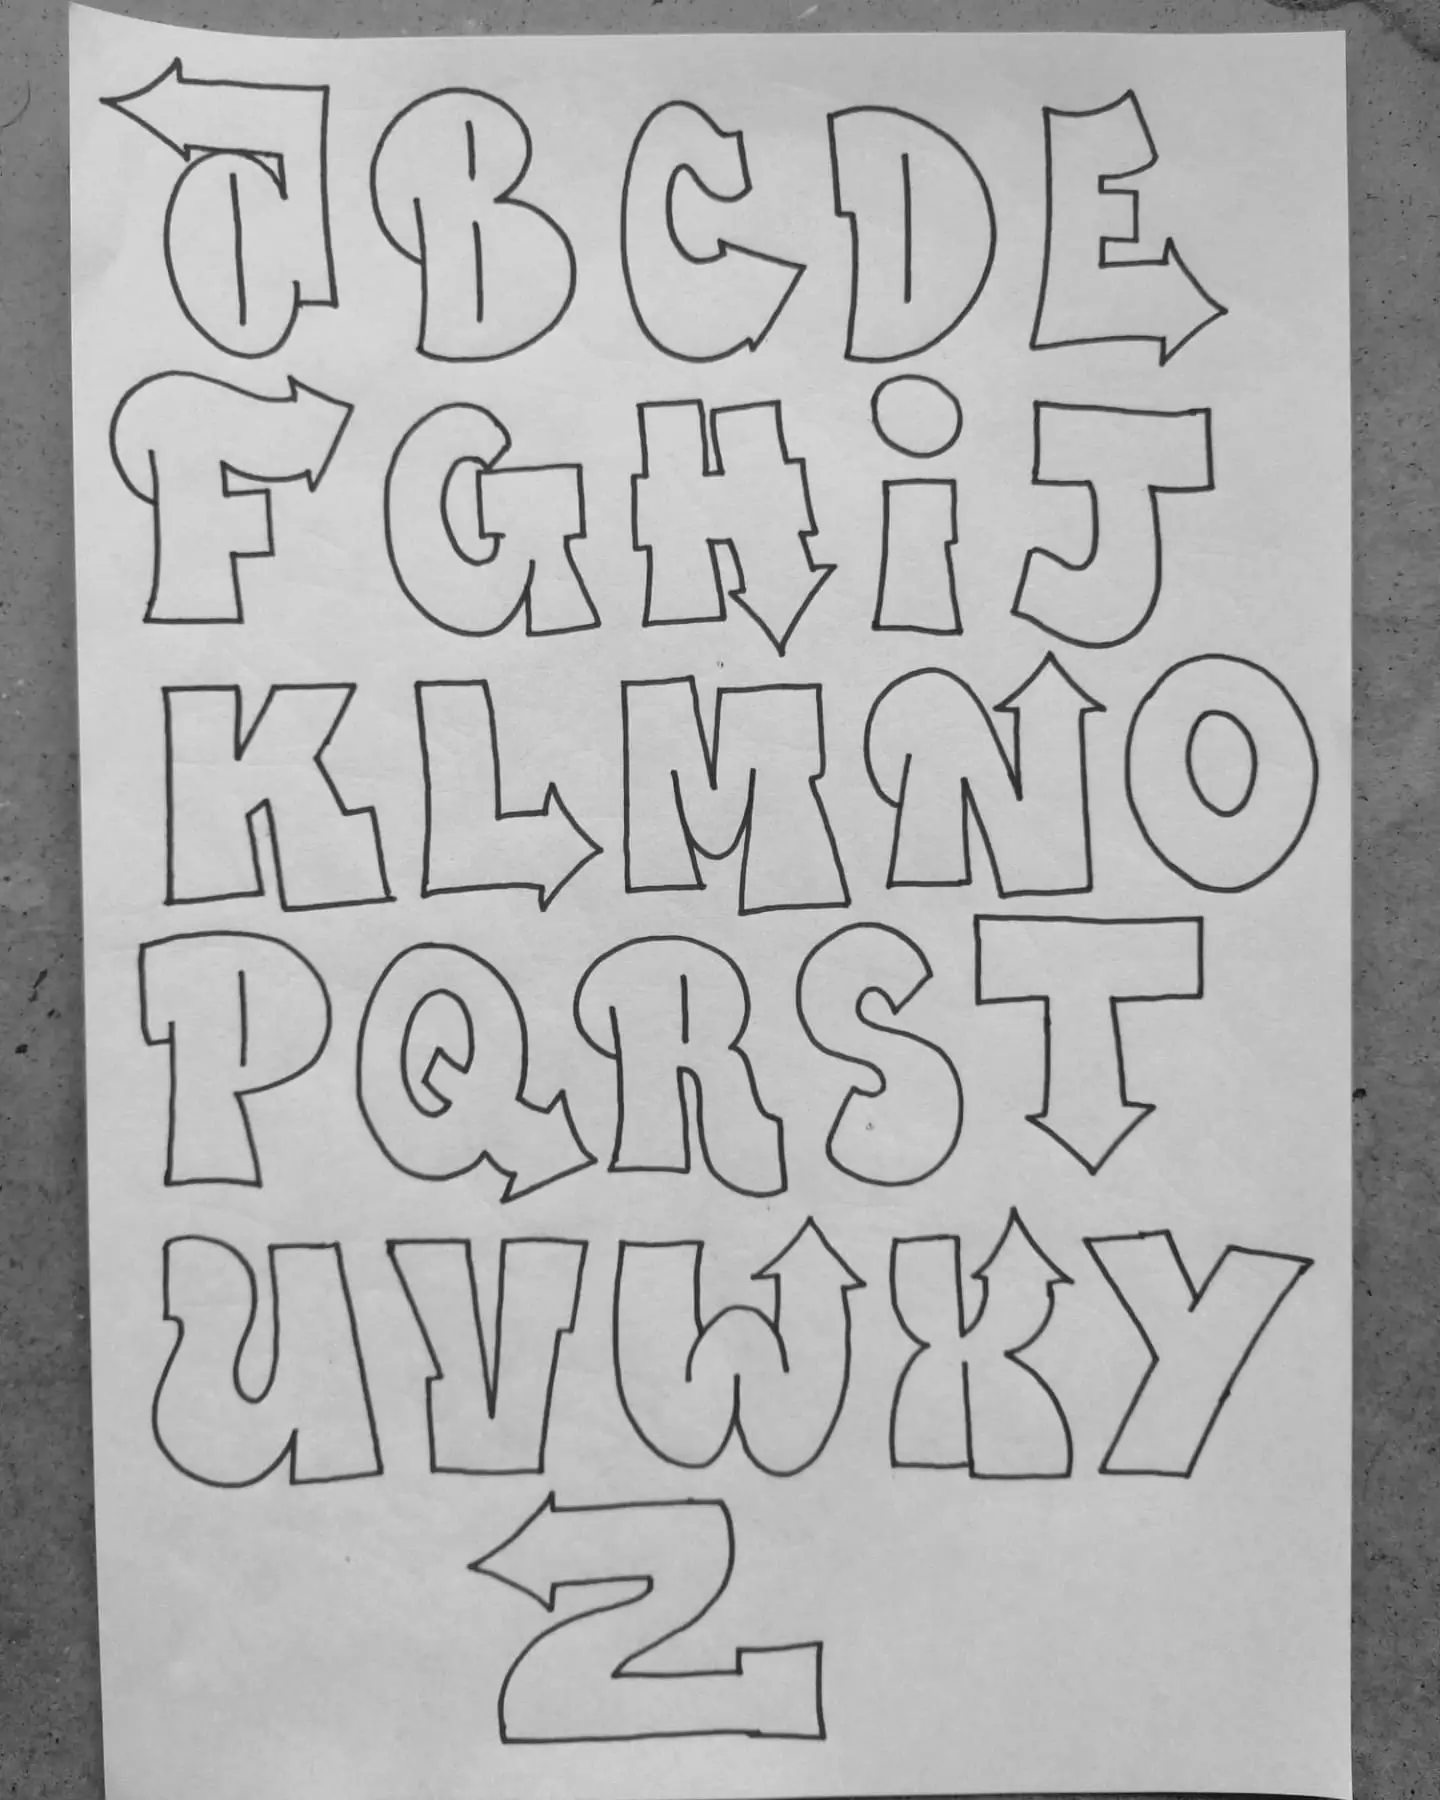 aBCDE
FGHiJ
KLMNO
PQRST
UVWXY
Z